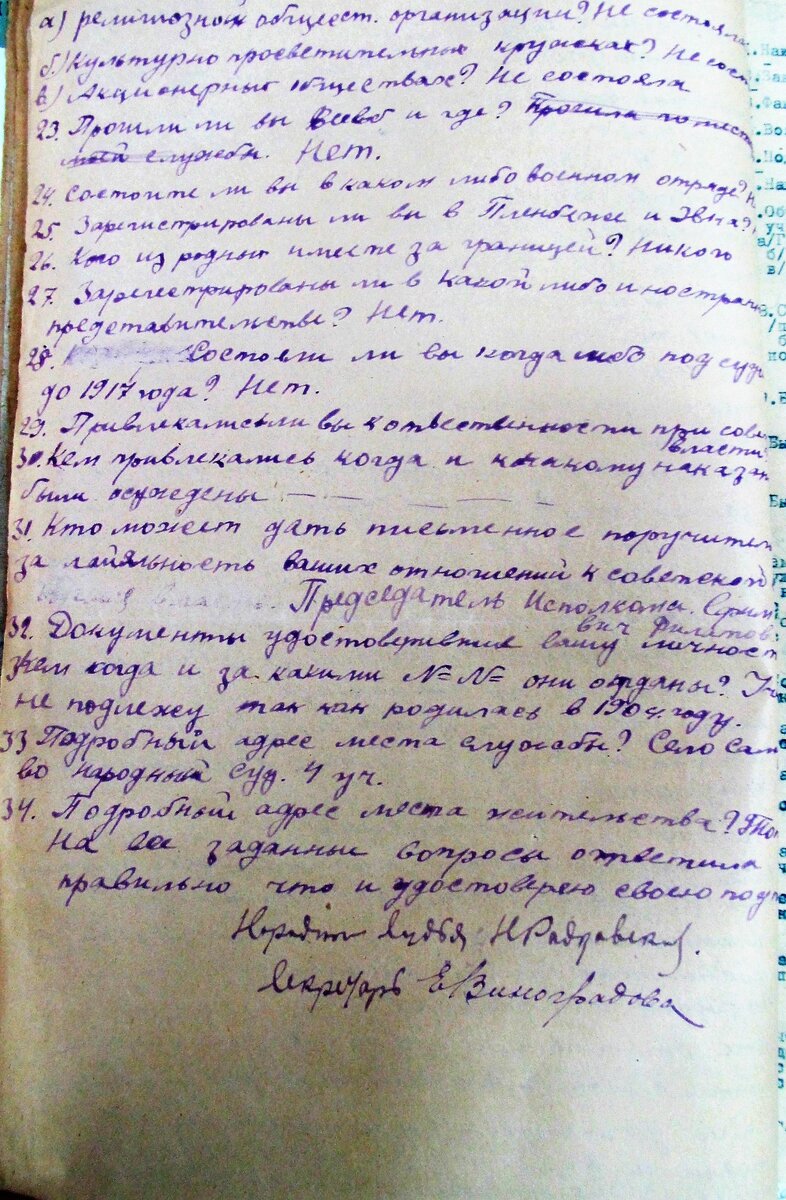 а) религиозной общест. организации? Не состояла
б) Культурно просветительных кружках? Не сост
в) Акционерных обществах? Не состояла
23. Прошли ли вы и где? Прошла по мест
моей службы. Нет.
24. Состоите ли вы в каком либо военном отряде? Н
25. Зарегистрированы ли вы в Пленбеже и Эвна?
26. Кто из родных имеете за границей? Никого
27. Зарегестрированы ли в какой либо иностран
представительстве? Нет.
28. Состояли ли вы когда либо под судо
до 1917 года? Нет.
29. Привлекались ли вы к ответственности при сове
власти
30. Кем привлекались когда и к какому наказан
были осуждены — — — —
31. Кто может дать письменное поручител
за лайяльность ваших отношений к советской
Председатель Исполкома.
вич Филатов.
32. Документы удостоверившие вашу личност
Кем когда и за какими №№ они отданы?
не подлежу так как родилась в 1904. году.
33 Подробный адрес места службы? Село Сам
во народный суд. 4 уч.
34. Подробный адрес места жительства?
На все заданные вопросы ответила
правильно что и удостоверею своею подп
Народный Судья Н
Секретарь Е Виноградова